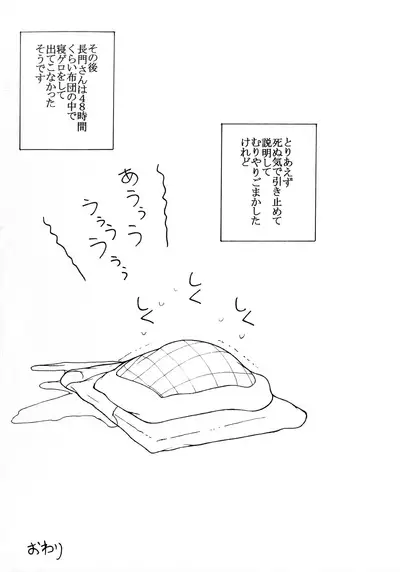 とりあえず
死ぬ気で引き止めて
説明して
むりやりごまかした
けれど
その後
長門さんは48時間
くらい布団の中で
寝ゲロをして
出てこなかった
そうです
あうぅ
うぅ
うぅぅ
しく
しく
しく
しく
おわり